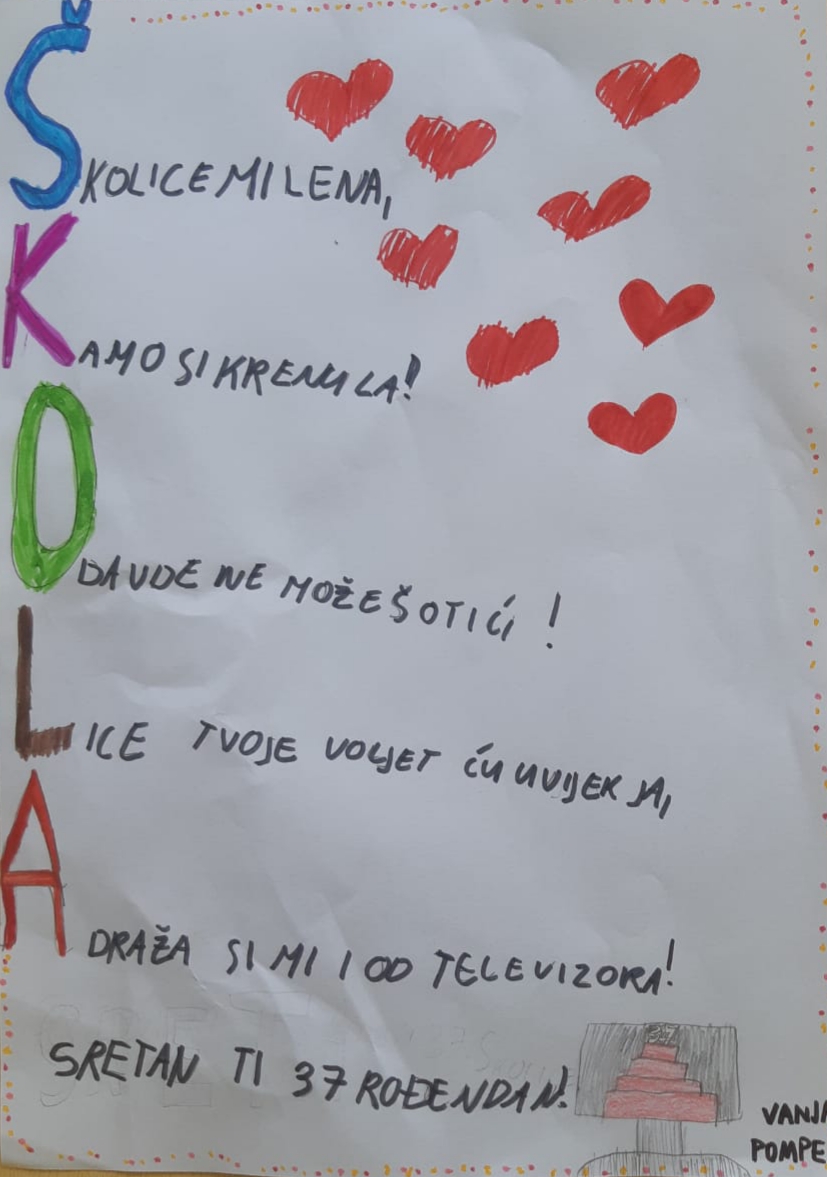 ŠKOLICE MI LENA,
KAMO SI KRENULA!
ODAVDE NE MOŽEŠ OTIĆI!
LICE TVOJE VOLJET ĆU UVIJEK JA,
A DRAŽA SI MI I OD TELEVIZORA!
SRETAN TI 37 ROĐENDAN!
37
VANJA
POMPE